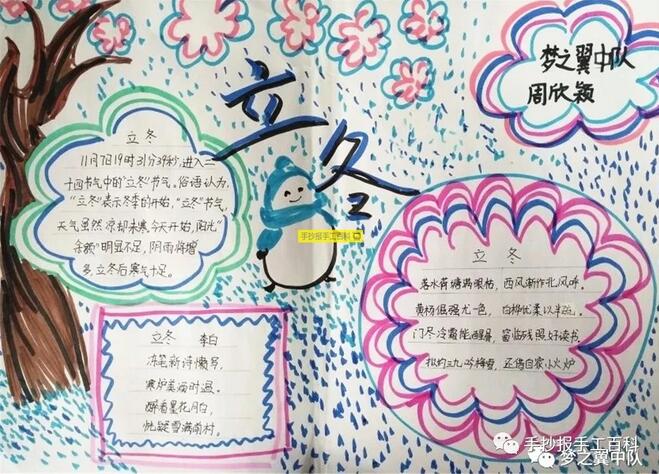 立冬
梦之翼中队
周欣颖
立冬
11月7日19时31分39秒,进入二
十四节气中的"立冬"节气。俗语认为,
"立冬"表示冬季的开始,"立冬"节气,
天气虽然凉却未寒,今天开始,阳光"
余额"明显不足,阴雨将增
多,立冬后寒气十足。
手抄报手工百科
立冬 李白
冻笔新诗懒写,
寒炉美酒时温。
醉看墨花月白,
恍疑雪满前村。
立冬
落水荷塘满眼枯,西风渐作北风呼。
黄杨倔强尤一色,白桦优柔以半疏。
门尽冷霜能醒骨,窗临残照好读书。
拟约三九吟梅雪,还借自家小火炉
手抄报手工百科
梦之翼中队